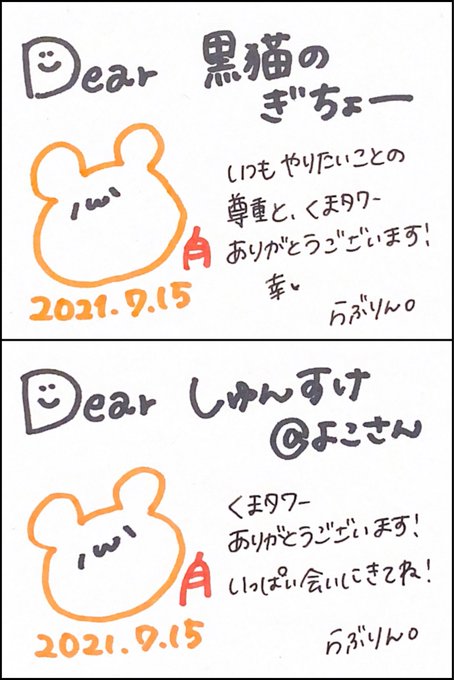 Dear 黒猫の
ぎちょー
いつもやりたいことの
尊重と、くまタワー
ありがとうございます!
幸し
2021.7.15
らぶりん。
Dear しゅんすけ
@よこさん
くまタワー
ありがとうございます!
いっぱい会いにきてね!
2021.7.15
らぶりん。